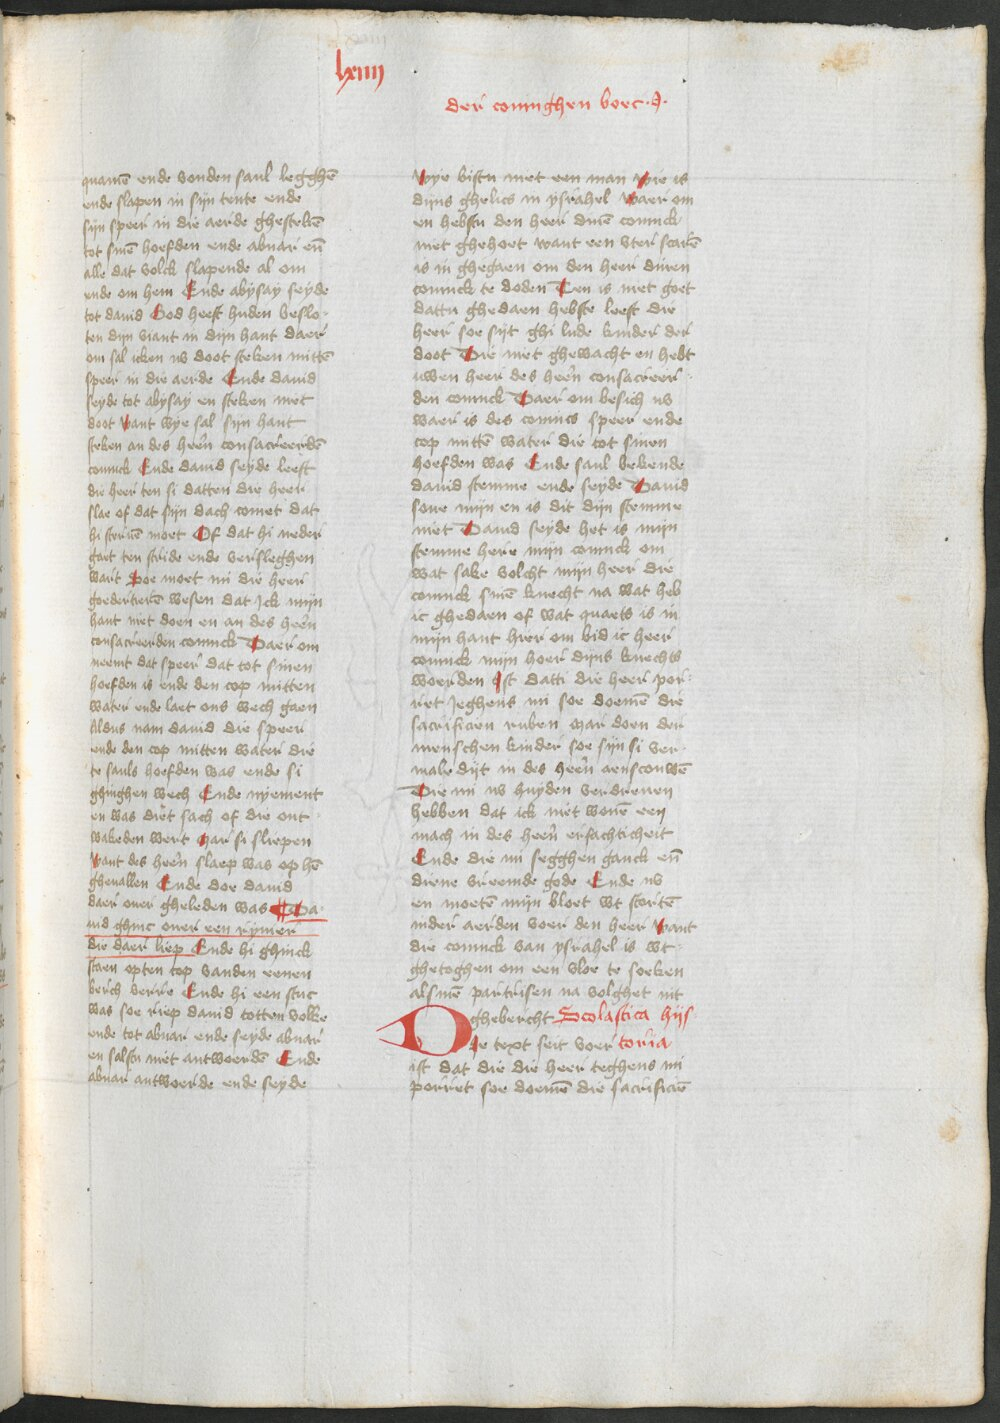 lxiiij
der coninghen boec .I.
quamē ende vonden saul legghē
ende slapen in sijn tente ende
sijn speer in die aerde ghestekē
tot sinē hoefden ende abnar eñ
alle dat volck slapende al om
ende om hem Ende abysay seyde
tot dauid God heeft huden beslo-
ten dijn viant in dijn hant daer
om sal icken nv doot steken mittē
speer in die aerde Ende dauid
seyde tot abysay en steken niet
doot want wye sal sijn hant
steken an des heern consacreerdē
coninck Ende dauid seyde leeft
die heer ten si datten die heer
slae of dat sijn dach comet dat
hi steruē moet Of dat hi neder
gaet ten stride ende versleghen
wart Soe moet mi die heer
goedertierē wesen dat Jck mijn
hant niet doen en an des heern
consacreerden coninck Daer om
neemt dat speer dat tot sinen
hoefden is ende den cop mitten
water ende laet ons wech gaen
Aldus nam dauid die speer
ende den cop mitten water die
te sauls hoefden was ende si
ghinghen wech Ende nyement
en was diēt sach of die ont-
wakeden wert Mar si sliepen
want des heern slaep was op hē
gheuallen Ende doe dauid
daer ouer gheleden was Da-
uid ghinc ouer een ryuier
die daer liep Ende hi ghinck
staen opten top vanden eenen
berch verre Ende hi een stuc
was soe riep dauid totten volke
ende tot abnar ende seyde abnar
en salstu niet antwoerdē Ende
abnar antwoerde ende seyde
Wye bistu niet een man Wie is
dijns ghelics in ysrahel Waer om
en hebstu den heer dinē coninck
niet ghehoet want een vter scarē
is in ghegaen om den heer dinen
coninck te doden Ten is niet goet
dattu ghedaen hebste leeft die
heer soe sijt ghi lude kinder der
doot Die niet ghewacht en hebt
uwen heer des heern consacreer-
den coninck Daer om besich nv
waer is des conincs speer ende
cop mittē water die tot sinen
hoefden was Ende saul bekende
dauids stemme ende seyde Dauid
sone mijn en is dit dijn stemme
niet Dauid seyde het is mijn
stemme here mijn coninck om
wat sake volcht mijn heer die
coninck sinē knecht na wat heb
ic ghedaen of wat quaets is in
mijn hant hier om bid ic heer
coninck mijn hoer dijns knechts
woerden Ist datti die heer por-
ret Jeghens mi soe doemē die
sacrificien ruken Mar doen der
menschen kinder soe sijn si ver-
maledijt in des heern aenscouwē
Die mi nv huyden verdreuen
hebben dat ick niet wonē een
mach in des heern erfachticheit
Ende die mi segghen ganck eñ
diene vreemde gode Ende nv
en moetē mijn bloet wt stortē
inder aerden voer den heer Want
die coninck van ysrahel is wt-
ghetoghen om een vloe te soeken
alsmē partrisen na volghet int
ghebercht Scolastica hijs
Die text seit voer toria
ist dat die die heer teghens mi
porret soe doemē die sacrificiē